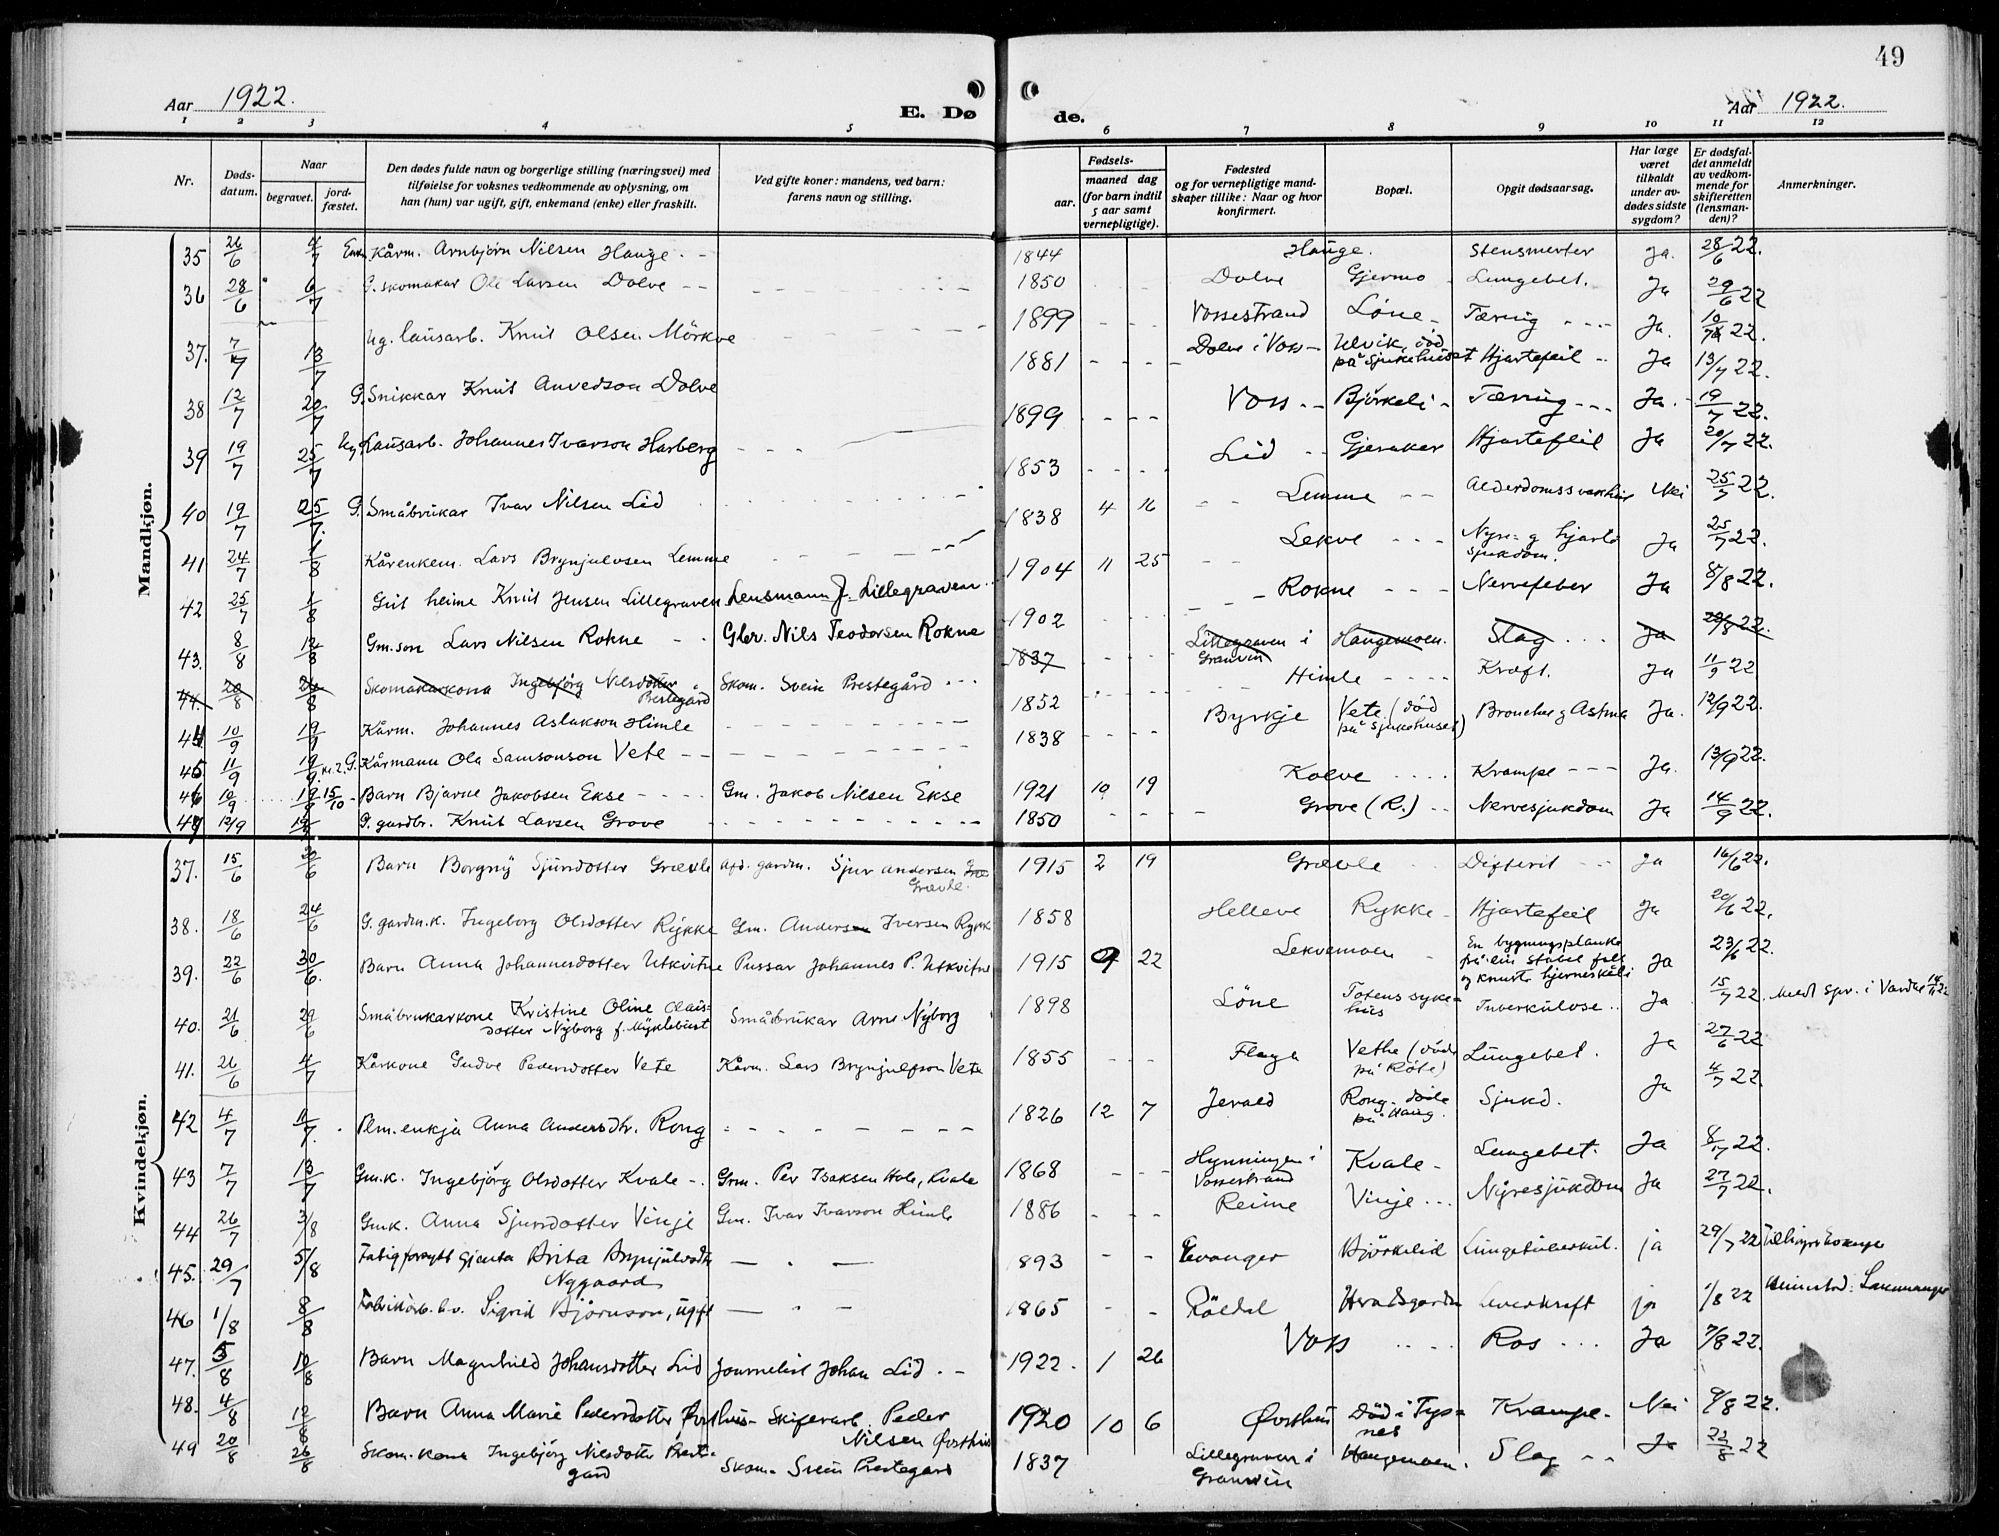 49
Aar 1922.
E. Dø de.
Aar 1922.
1 2 3 4 5 6 7 8 9 10 11 12
Nr.
Døds-
datum.
Naar
begravet.
jord-
fæstet.
Den dødes fulde navn og borgerlige stilling (næringsvei) med
tilføielse for voksnes vedkommende av oplysning, om
han (hun) var ugift, gift, enkemand (enke) eller fraskilt.
Ved gifte koner: mandens, ved barn:
farens navn og stilling.
Fødsels-
aar.
maaned dag
(for barn indtil
5 aar samt
vernepligtige).
Fødested
og for vernepligtige mand-
skaper tillike: Naar og hvor
konfirmert.
Bopæl.
Opgit dødsaarsag.
Har læge
været
tilkaldt
under av-
dødes sidste
sygdom?
Er dødsfal-
det anmeldt
av vedkom-
mende for
skifteretten
(lensman-
den)?
Anmerkninger.
Mandkjøn.
35 26/6 4/7 Enkm. Kårm. Arnbjørn Nilsen Hauge. 1844 Hauge. Stensmerter Ja. 28/6 22.
36 28/6 6/7 G. skomakar Ole Larsen Dolve 1850 Dolve Gjermo Lungebet. Ja 29/6 22
37. 7/7 13/7 Ug. lausarb. Knut Olsen Mörkve 1899 Vossestrand Löne Tæring Ja. 10/7 22.
38 12/7 20/7 G. Snikkar Knut Anvedson Dolve 1881 Dolve i Voss Ulvik, död på sjukehuset Hjartefeil Ja 13/7 22.
39 19/7 25/7 Ug. Lausarb. Johannes Ivarson Harberg 1899 Voss Björkeli Tæring Ja. 19/7 22.
40 19/7 25/7 G. Småbrukar Ivar Nilsen Lid 1853 Lid Gjeraker Hjartefeil Ja 20/7 22.
41 24/7 1/8 Kårenkem. Lars Brynjulvsen Lemme 1838 4 16 Lemme Alderdomssvakheit Nei 25/7 22.
42 25/7 1/8 Gut heime Knut Jensen Lillegraven Lensmann J. Lillegraven 1904 11 25 Lekve Nyre- g hjarte sjukdom. Ja 25/7 22.
43. 8/8 12/8 Gm. son Lars Nilsen Rokne Gbr. Nils Teodorsen Rokne 1902 Rokne Nervefeber Ja 8/8 22.
44. 20/8 26/8 Skomakarkona Ingebjörg Nilsdotter Prestegård Skom. Svein Prestegård 1837 Lillegraven i Granvin Haugamoen. Slag Ja 22.
44 10/9 19/9 Kårm. Johannes Aslakson Himle 1852 Himle Kræft. Ja 11/9 22
45 11/9 19/9 G. Kårmann Ola Samsonson Vete 1838 Byrkje Vete (död på sjukehuset) Bronchit g Astma Ja. 12/9 22.
46 10/9 19/9 15/10 Barn Bjarne Jakobsen Ekse Gm. Jakob Nilsen Ekse 1921 10 19 Kolve Krampe Ja. 13/9 22.
47 12/9 19/9 G. gardbr. Knut Larsen Grove 1850 Grove (R.) Nervesjukdom Ja 14/9 22.
Kvindekjøn.
37. 15/6 Barn Borgny Sjursdotter Grævle Gm. Sjur Andersen Grævle. 1915 2 19 Grævle Difterit Ja 16/6 22.
38. 18/6 24/6 G. gardm. k. Ingeborg Olsdotter Rykke Gm. Andersen Iversen Rykk 1858 Helleve Rykke Hjartefeil Ja 20/6 22.
39. 22/6 30/6 Barn Anna Johannesdotter Utkvitne Pussar Johannes P. Utkvitne 1915 9 22 Lekvemoen En bygningsplanke på ein stabel fall og knuste hjerneskåli Ja 23/6 22.
40. 21/6 29/6 Småbrukarkone Kristine Oline Olausdotter Nyborg f. Myklebust Småbrukar Arne Nyborg 1898 Löne Totens sykehus Tuberkulose Ja 15/7 22.
41. 26/6 4/7 Kårkone Gudve Pedersdotter Vete Kårm. Lars Brynjulfson Vete 1855 Flaga Vethe (död på Röte) Lungebet. Ja 27/6 22
42 4/7 11/7 Plm. enkja Anna Andersdtr. Rong 1826 12 7 Jerald Rong döde på Haug. Sjukd. Ja 4/7 22.
43 7/7 13/7 Gm.k. Ingebjörg Olsdotter Kvale Grm. Per Isaksen Hole, Kvale 1868 Hynningen i Vossestrand Kvale Lungebet. Ja 8/7 22.
44 26/7 3/8 Gmk. Anna Sjursdotter Vinje Gm. Ivar Ivarson Himle 1886 Reime Vinje Nyresjukdom Ja 27/7 22.
45. 29/7 5/8 Fatigforsytt gjenta Brita Brynjulvsdtr Nygaard 1893 Evanger Björkelid Lungetuberkul. ja 29/7 22
46 1/8 8/8 Fabrikarb. Sigrid Björnson, ugift 1865 Röldal Heradsgarden Leverkræft ja 1/8 22
47. 5/8 10/8 Barn Magnhild Johansdotter Lid Journalist Johan Lid. 1922. 1 26 Voss Ros Ja 7/8 22.
48. 4/8 12/8 Barn Anna Marie Pedersdotter Øvsthus Skiferarb. Peder Nilsen Øvsthus 1920 10 6 Øvsthus Död i Tysnes Krampe Nei 9/8 22.
49 20/8 26/8 Skom. kona Ingebjörg Nilsdotter Prestegard Skom. Svein Prestegard 1837 Lillegraven i Granvin Haugamoen. Slag Ja 22/8 22